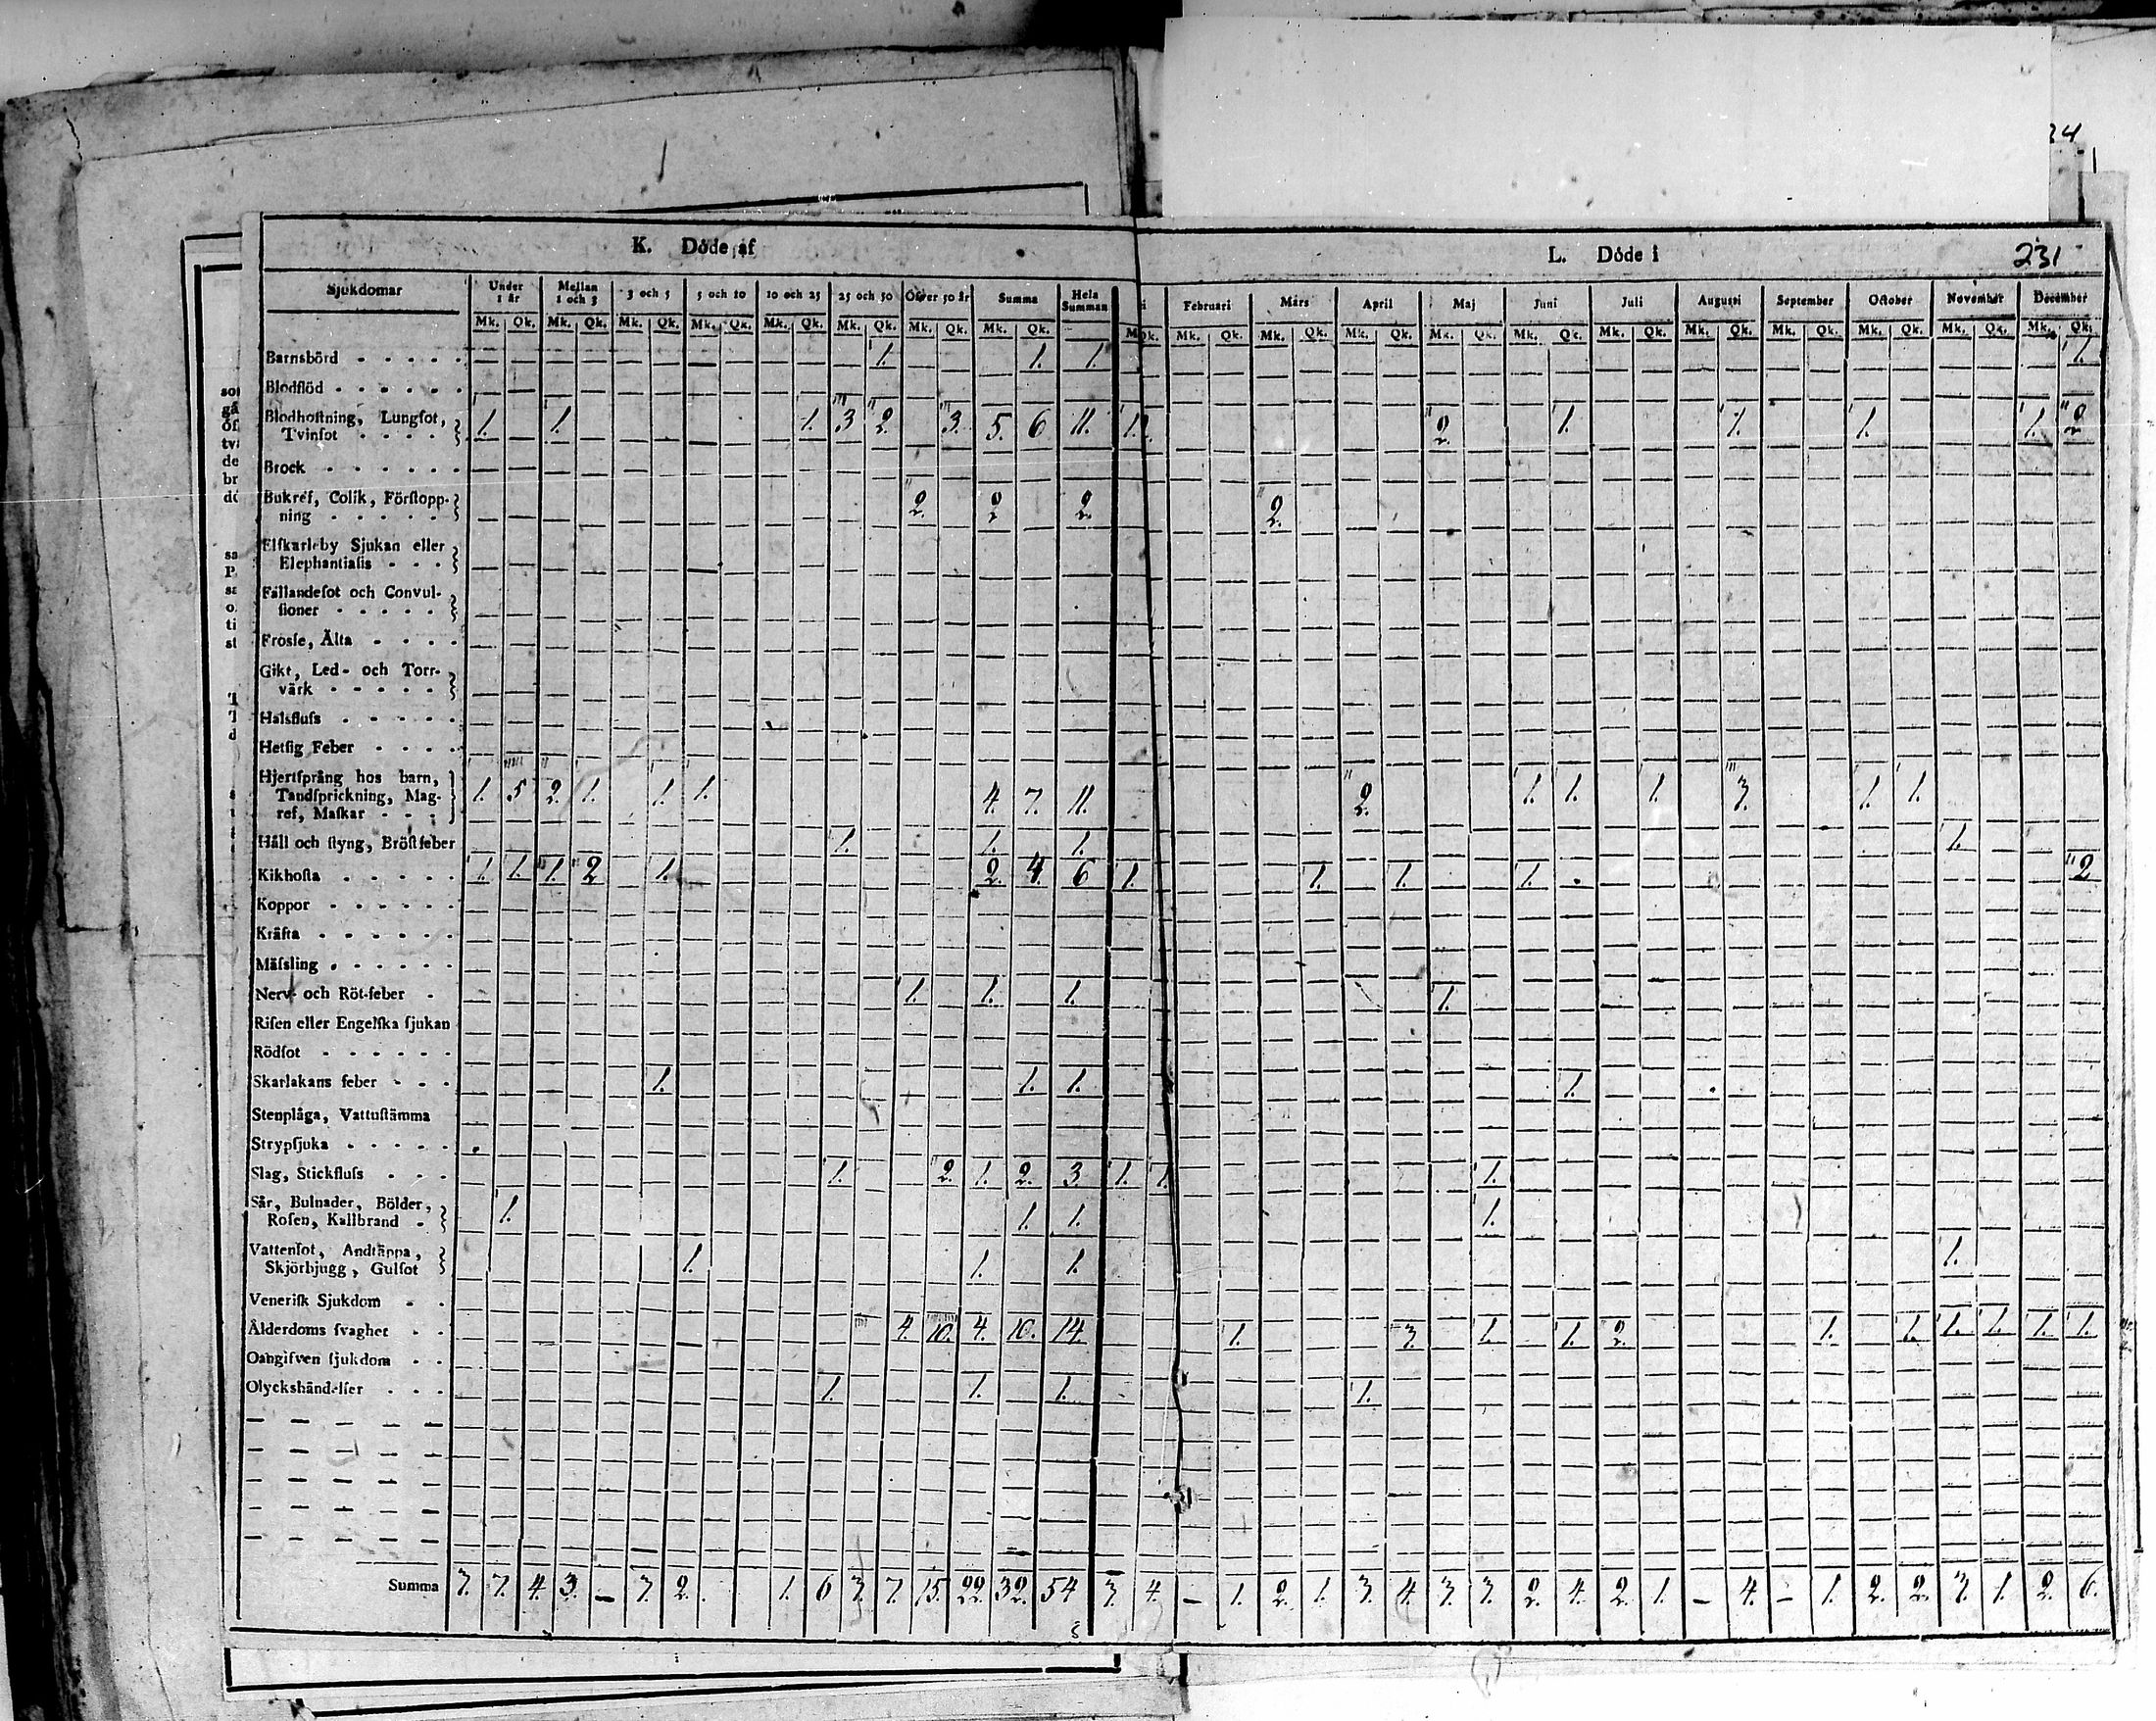 34
K. Döde af L. Döde i 231
Sjukdomar Under 1 år Mellan 1 och 3 3 och 5 5 och 10 10 och 25 25 och 50 Öfver 50 år Summa Hela Summan Februari Mars April Maj Juni Juli Augusti September October November December
Mk. Qk. Mk. Qk. Mk. Qk. Mk. Qk. Mk. Qk. Mk. Qk. Mk. Qk. Mk. Qk. Mk. Qk. Mk. Qk. Mk. Qk. Mk. Qk. Mk. Qk. Mk. Qk. Mk. Qk. Mk. Qk. Mk. Qk. Mk. Qk. Mk. Qk. Mk. Qk.
Barnsbörd 1. 1. 1. 1.
Blodflöd
Blodhoſtning, Lungſot,
Tvinſot 1. 1. 1. 3 2. 3. 5. 6 11. 1. 2. 2. 1. 1. 1. 1. 2
Brock
Bukref, Colik, Förſtopp-
ning 2. 2 2. 2.
Elſkarleby Sjukan eller
Elephantiaſis
Fallandeſot och Convul-
ſioner
Frosſe, Älta
Gikt, Led- och Torr-
värk
Halsfluſs
Hetſig Feber
Hjertſprång hos barn,
Tandſprickning, Mag-
ref, Maſkar 1. 5 2. 1. 1. 1. 4. 7. 11. 2. 1. 1. 1. 3. 1. 1.
Håll och ſtyng, Bröſtfeber 1. 1. 1. 1.
Kikhoſta 1. 1. 1. 2 1. 2. 4. 6 1. 1. 1. 1. 2
Koppor
Kräfta
Mäſsling
Nerv- och Röt-feber 1. 1. 1. 1.
Riſen eller Engelſka ſjukan
Rödſot
Skarlakans feber 1. 1. 1. 1.
Stenplåga, Vattuſtämma
Strypſjuka
Slag, Stickfluſs 1. 2. 1. 2. 3. 1. 1. 1.
Sår, Bulnader, Bölder,
Roſen, Kallbrand 1. 1. 1. 1.
Vattenſot, Andtäppa,
Skjörbjugg, Gulſot 1. 1. 1. 1.
Veneriſk Sjukdom
Ålderdoms ſvaghet 4. 10. 4. 10. 14. 1. 3. 1. 1. 2. 1. 1. 1. 1. 1. 1.
Oangifven ſjukdom
Olyckshändelſer 1. 1. 1. 1.
Summa 3. 7. 4. 3. — 3. 2. 1. 6 3. 7. 15. 22. 32. 54 3. 4. — 1. 2. 1. 3. 4. 3. 3. 2. 4. 2. 1. — 4. — 1. 2. 2. 3. 1. 2. 6.